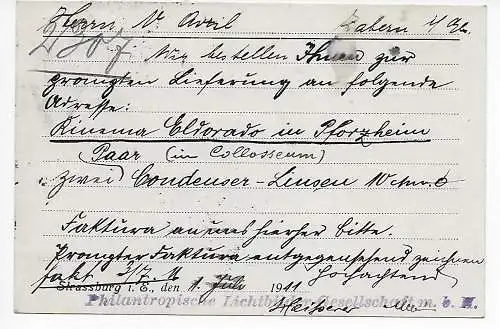 Herrn V. Avril Zabern i/ Els.
Wir bestellen Ihnen zur
prompten Lieferung an folgende
Adresse:
Kinema Eldorado in Pforzheim
Paar (in Collosseum)
zwei Condenser-Linsen 10 cm.
Faktura an uns hierher bitte.
Prompter Faktura entgegensehend zeichnen
fakt 3/7. Hochachtend
Strassburg i. E., den 1. Juli 1911
Philantropische Lichtbilder-Gesellschaft m. b. H.